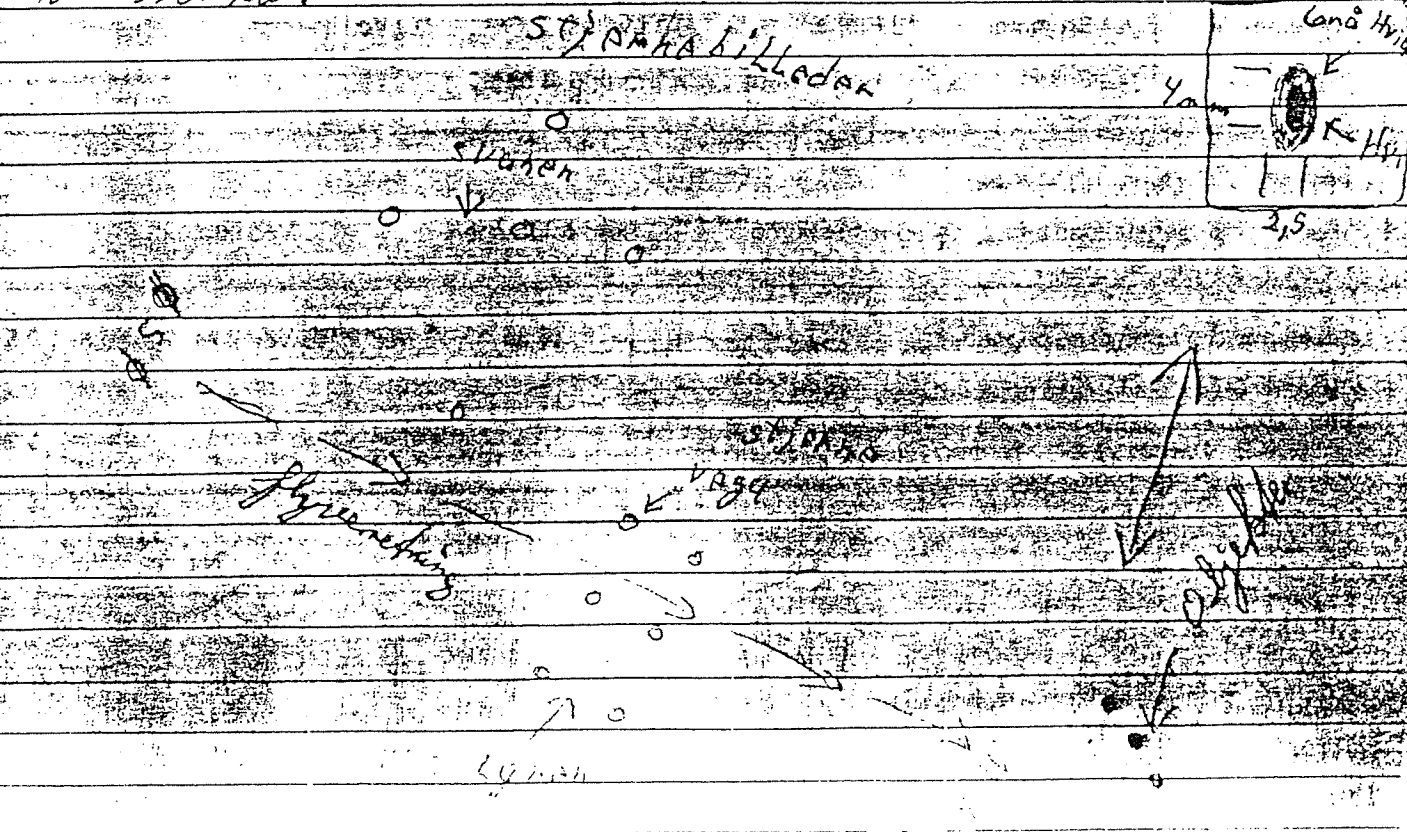 Stjærnebilleder
Grå Hvid
4mm
Hvi
2,5
Svanen
S
Stjerne
Vega
Flyveretning
Objekter
Lyren